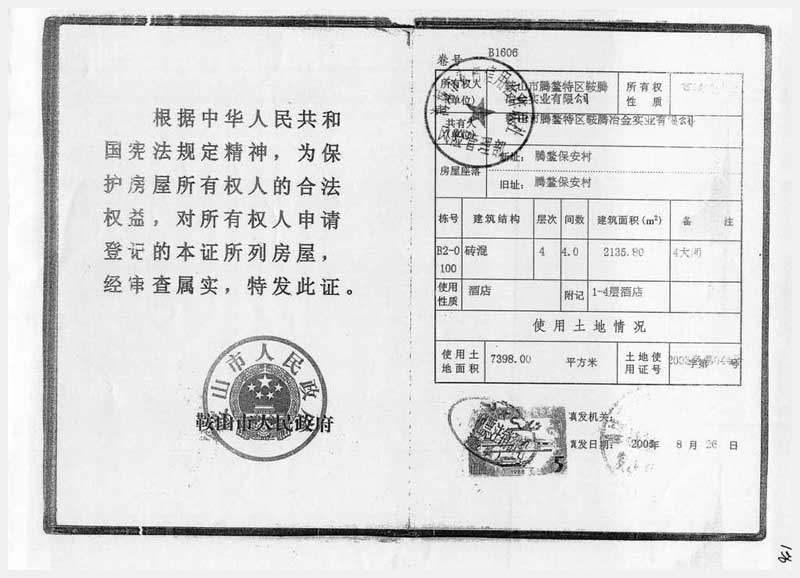 根据中华人民共和
国宪法规定精神，为保
护房屋所有权人的合法
权益，对所有权人申请
登记的本证所列房屋，
经审查属实，特发此证。
山市人民政
鞍山市人民政府
卷号 B1606
所有权人
(单位)
鞍山市腾鳌特区鞍腾
冶金实业有限公司
所有权
性 质
共有人
鞍山市腾鳌特区鞍腾冶金实业有限公司
房屋座落
新址： 腾鳌保安村
旧址： 腾鳌保安村
栋号 建筑结构 层次 间数 建筑面积(m²) 备 注
B2-0
100
砖混 4 4.0 2135.80 4大间
使用
性质
酒店 附记 1-4层酒店
使用土地情况
使用土
地面积
7398.00 平方米
土地使
用证号
字第 号
填发机关:
填发日期: 8 月 26 日
5
136